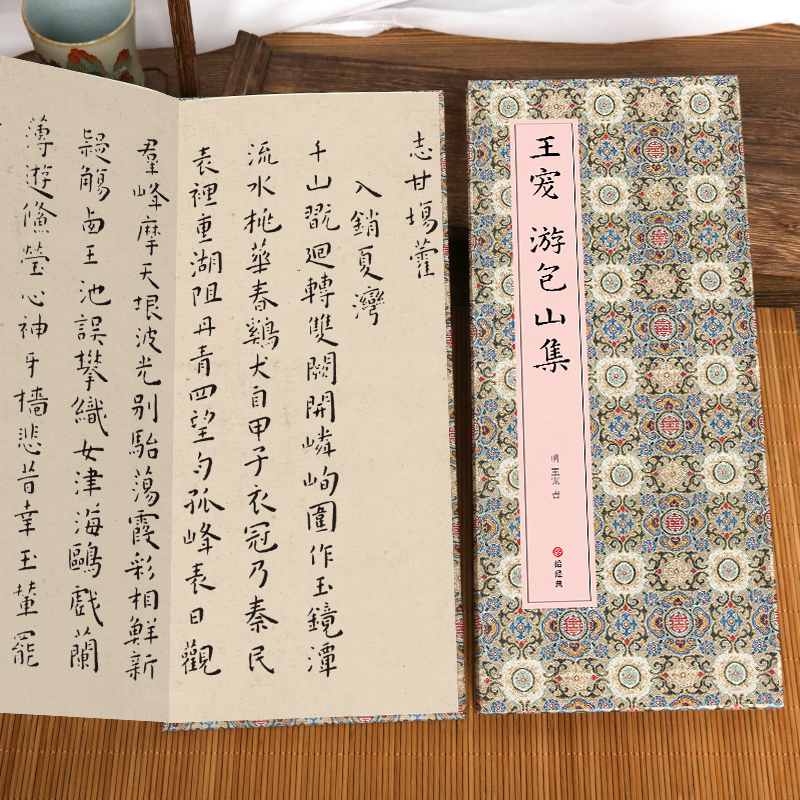 志甘場藿
入銷夏灣
千山翫迴轉雙闕開嶙峋圍作玉鏡潭
流水桃華春鷄犬自甲子衣冠乃秦民
表裡重湖阻丹青四望勻孤峰表日觀
羣峰摩天垠波光別駘蕩霞彩相鮮新
觴王池誤攀織女津海鷗戲蘭
薄遊 瑩心神 悲昔幸玉輦罷
王宠 游包山集
明 王宠 书
拾经典